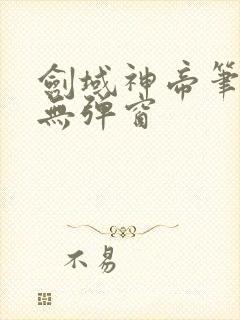 劍域神帝筆
無彈窗
不易